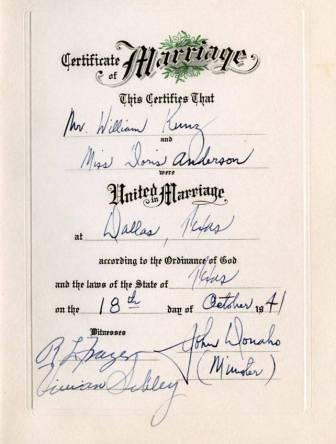 Certificate of Marriage
This Certifies That
Mr. William Kunz
and
Miss Doris Anderson
were
United in Marriage
at Dallas, Texas
according to the Ordinance of God
and the laws of the State of Texas
on the 18th day of October 1941
Witnesses
R L Frazer
Vivian Sibley
John Donaho
(Minister)